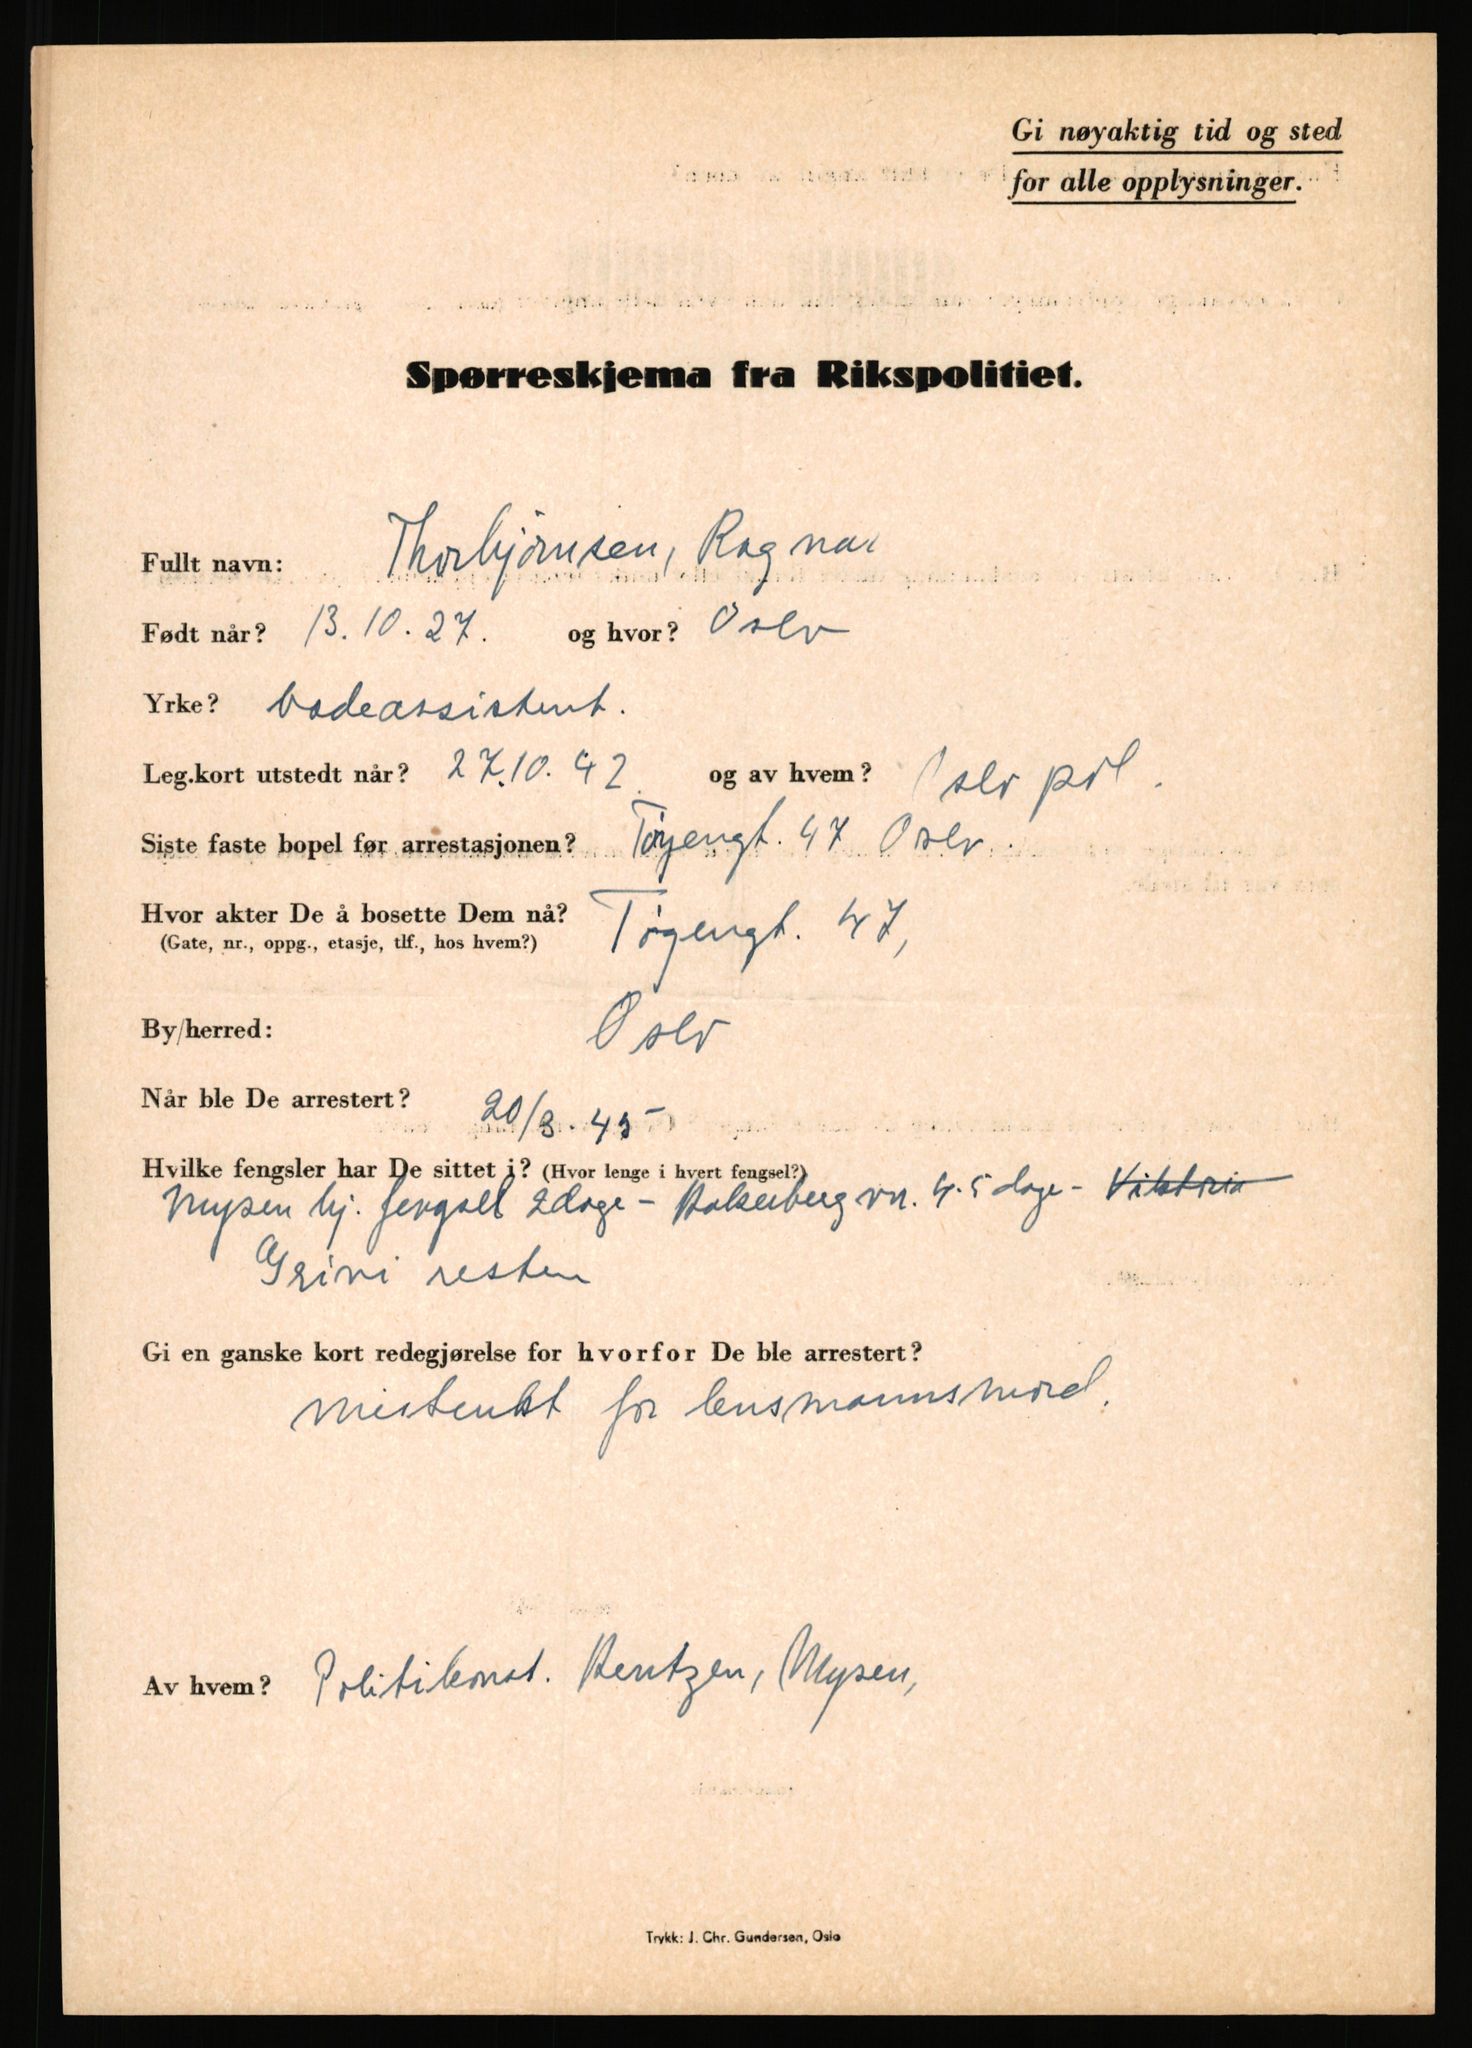 Gi nøyaktig tid og sted
for alle opplysninger.
Spørreskjema fra Rikspolitiet.
Fullt navn: Thorbjörnsen, Ragnar
Født når? 13.10.27. og hvor? Oslo
Yrke? badeassistent.
Leg.kort utstedt når? 27.10.42. og av hvem? Oslo pol.
Siste faste bopel før arrestasjonen? Tøyengt. 47 Oslo.
Hvor akter De å bosette Dem nå? Tøyengt. 47,
(Gate, nr., oppg., etasje, tlf., hos hvem?)
By/herred: Oslo
Når ble De arrestert? 20/3.45
Hvilke fengsler har De sittet i? (Hvor lenge i hvert fengsel?)
Mysen hj. fengsel 2 dage - vn. 4-5 dage - Viktoria
Grini resten
Gi en ganske kort redegjørelse for hvorfor De ble arrestert?
mistenkt for lensmannsmord.
Av hvem? Politikonst. Berntzen, Mysen,
Trykk: J. Chr. Gundersen, Oslo